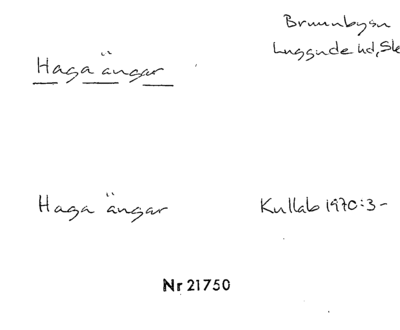 Brunnbysn
Luggude hd, Sk
Haga ängar
Haga ängar
Kullab 1970:3-
Nr 21750